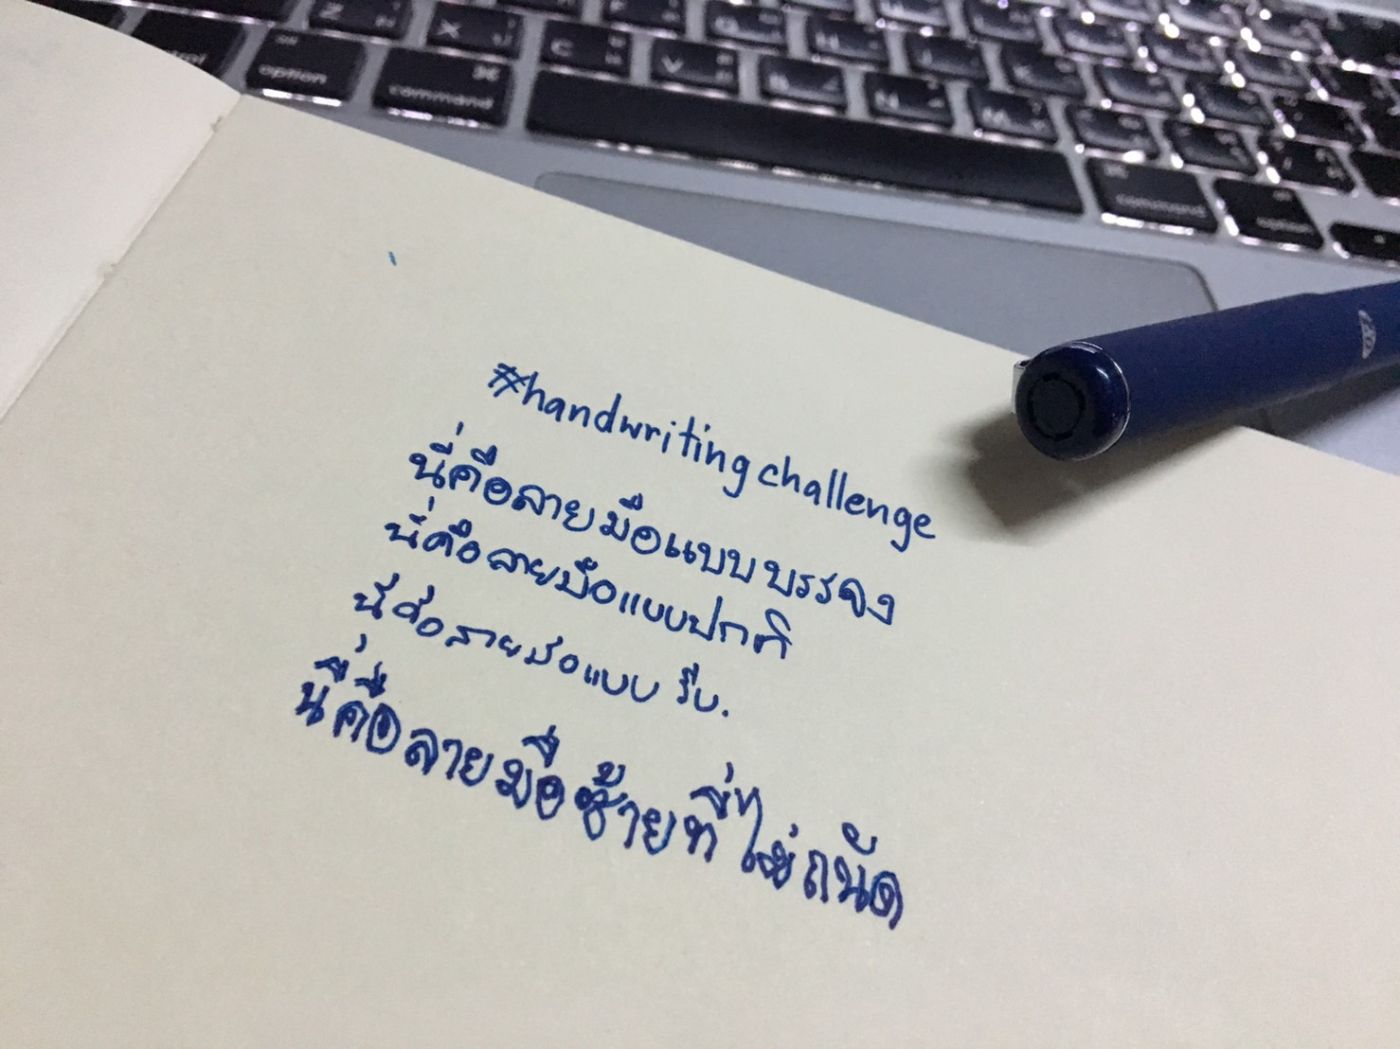 Z X C V B N M
option command command option
#handwritingchallenge
นี่คือลายมือแบบบรรจง
นี่คือลายมือแบบปกติ
นี่คือลายมือแบบ รีบ.
นี่คือลายมือซ้ายที่ไม่ถนัด